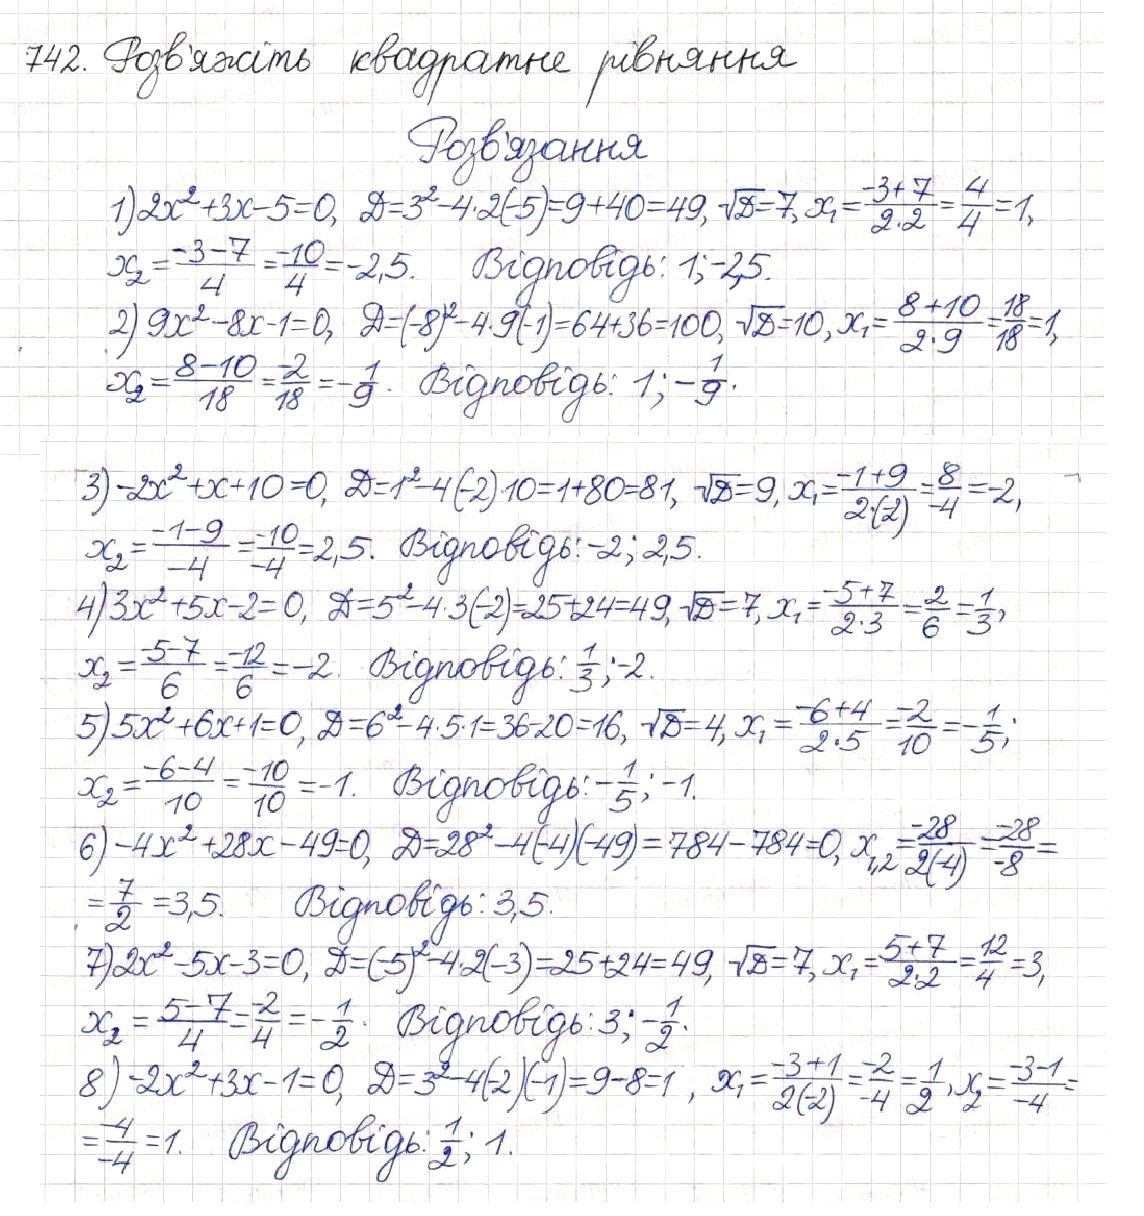 742. Розв'яжіть квадратне рівняння
Розв'язання
1) 2x²+3x-5=0, D=3²-4·2(-5)=9+40=49, √D=7, x₁=(-3+7)/(2·2)=4/4=1,
x₂=(-3-7)/4=-10/4=-2,5. Відповідь: 1; -2,5.
2) 9x²-8x-1=0, D=(-8)²-4·9(-1)=64+36=100, √D=10, x₁=(8+10)/(2·9)=18/18=1,
x₂=(8-10)/18=-2/18=-1/9. Відповідь: 1; -1/9.
3) -2x²+x+10=0, D=1²-4(-2)·10=1+80=81, √D=9, x₁=(-1+9)/(2·(-2))=8/-4=-2,
x₂=(-1-9)/-4=-10/-4=2,5. Відповідь: -2; 2,5.
4) 3x²+5x-2=0, D=5²-4·3(-2)=25+24=49, √D=7, x₁=(-5+7)/(2·3)=2/6=1/3,
x₂=(-5-7)/6=-12/6=-2. Відповідь: 1/3; -2.
5) 5x²+6x+1=0, D=6²-4·5·1=36-20=16, √D=4, x₁=(-6+4)/(2·5)=-2/10=-1/5;
x₂=(-6-4)/10=-10/10=-1. Відповідь: -1/5; -1.
6) -4x²+28x-49=0, D=28²-4(-4)(-49)=784-784=0, x₁,₂=-28/(2(-4))=-28/-8=
=7/2=3,5. Відповідь: 3,5.
7) 2x²-5x-3=0, D=(-5)²-4·2(-3)=25+24=49, √D=7, x₁=(5+7)/(2·2)=12/4=3,
x₂=(5-7)/4=-2/4=-1/2. Відповідь: 3; -1/2.
8) -2x²+3x-1=0, D=3²-4(-2)(-1)=9-8=1, x₁=(-3+1)/(2(-2))=-2/-4=1/2, x₂=(-3-1)/-4=
=-4/-4=1. Відповідь: 1/2; 1.